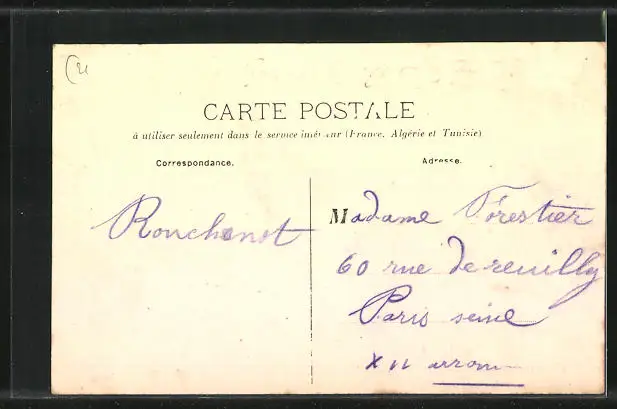 CARTE POSTALE
à utiliser seulement dans le service intérieur (France, Algérie et Tunisie)
Correspondance.
Adresse.
Ronchenot
Madame Forestier
60 rue de reuilly
Paris seine
XII arrom